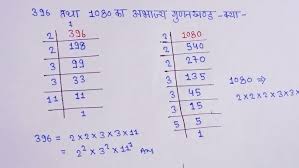 396 तथा 1080 का अभाज्य गुणनखण्ड क्या-
2 | 396
2 | 198
3 | 99
3 | 33
11 | 11
1
2 | 1080
2 | 540
2 | 270
3 | 135
3 | 45
3 | 15
5 | 5
1
1080 ⇒
2×2×2×3×
396 = 2×2×3×3×11
= 2² × 3² × 11¹ Ans